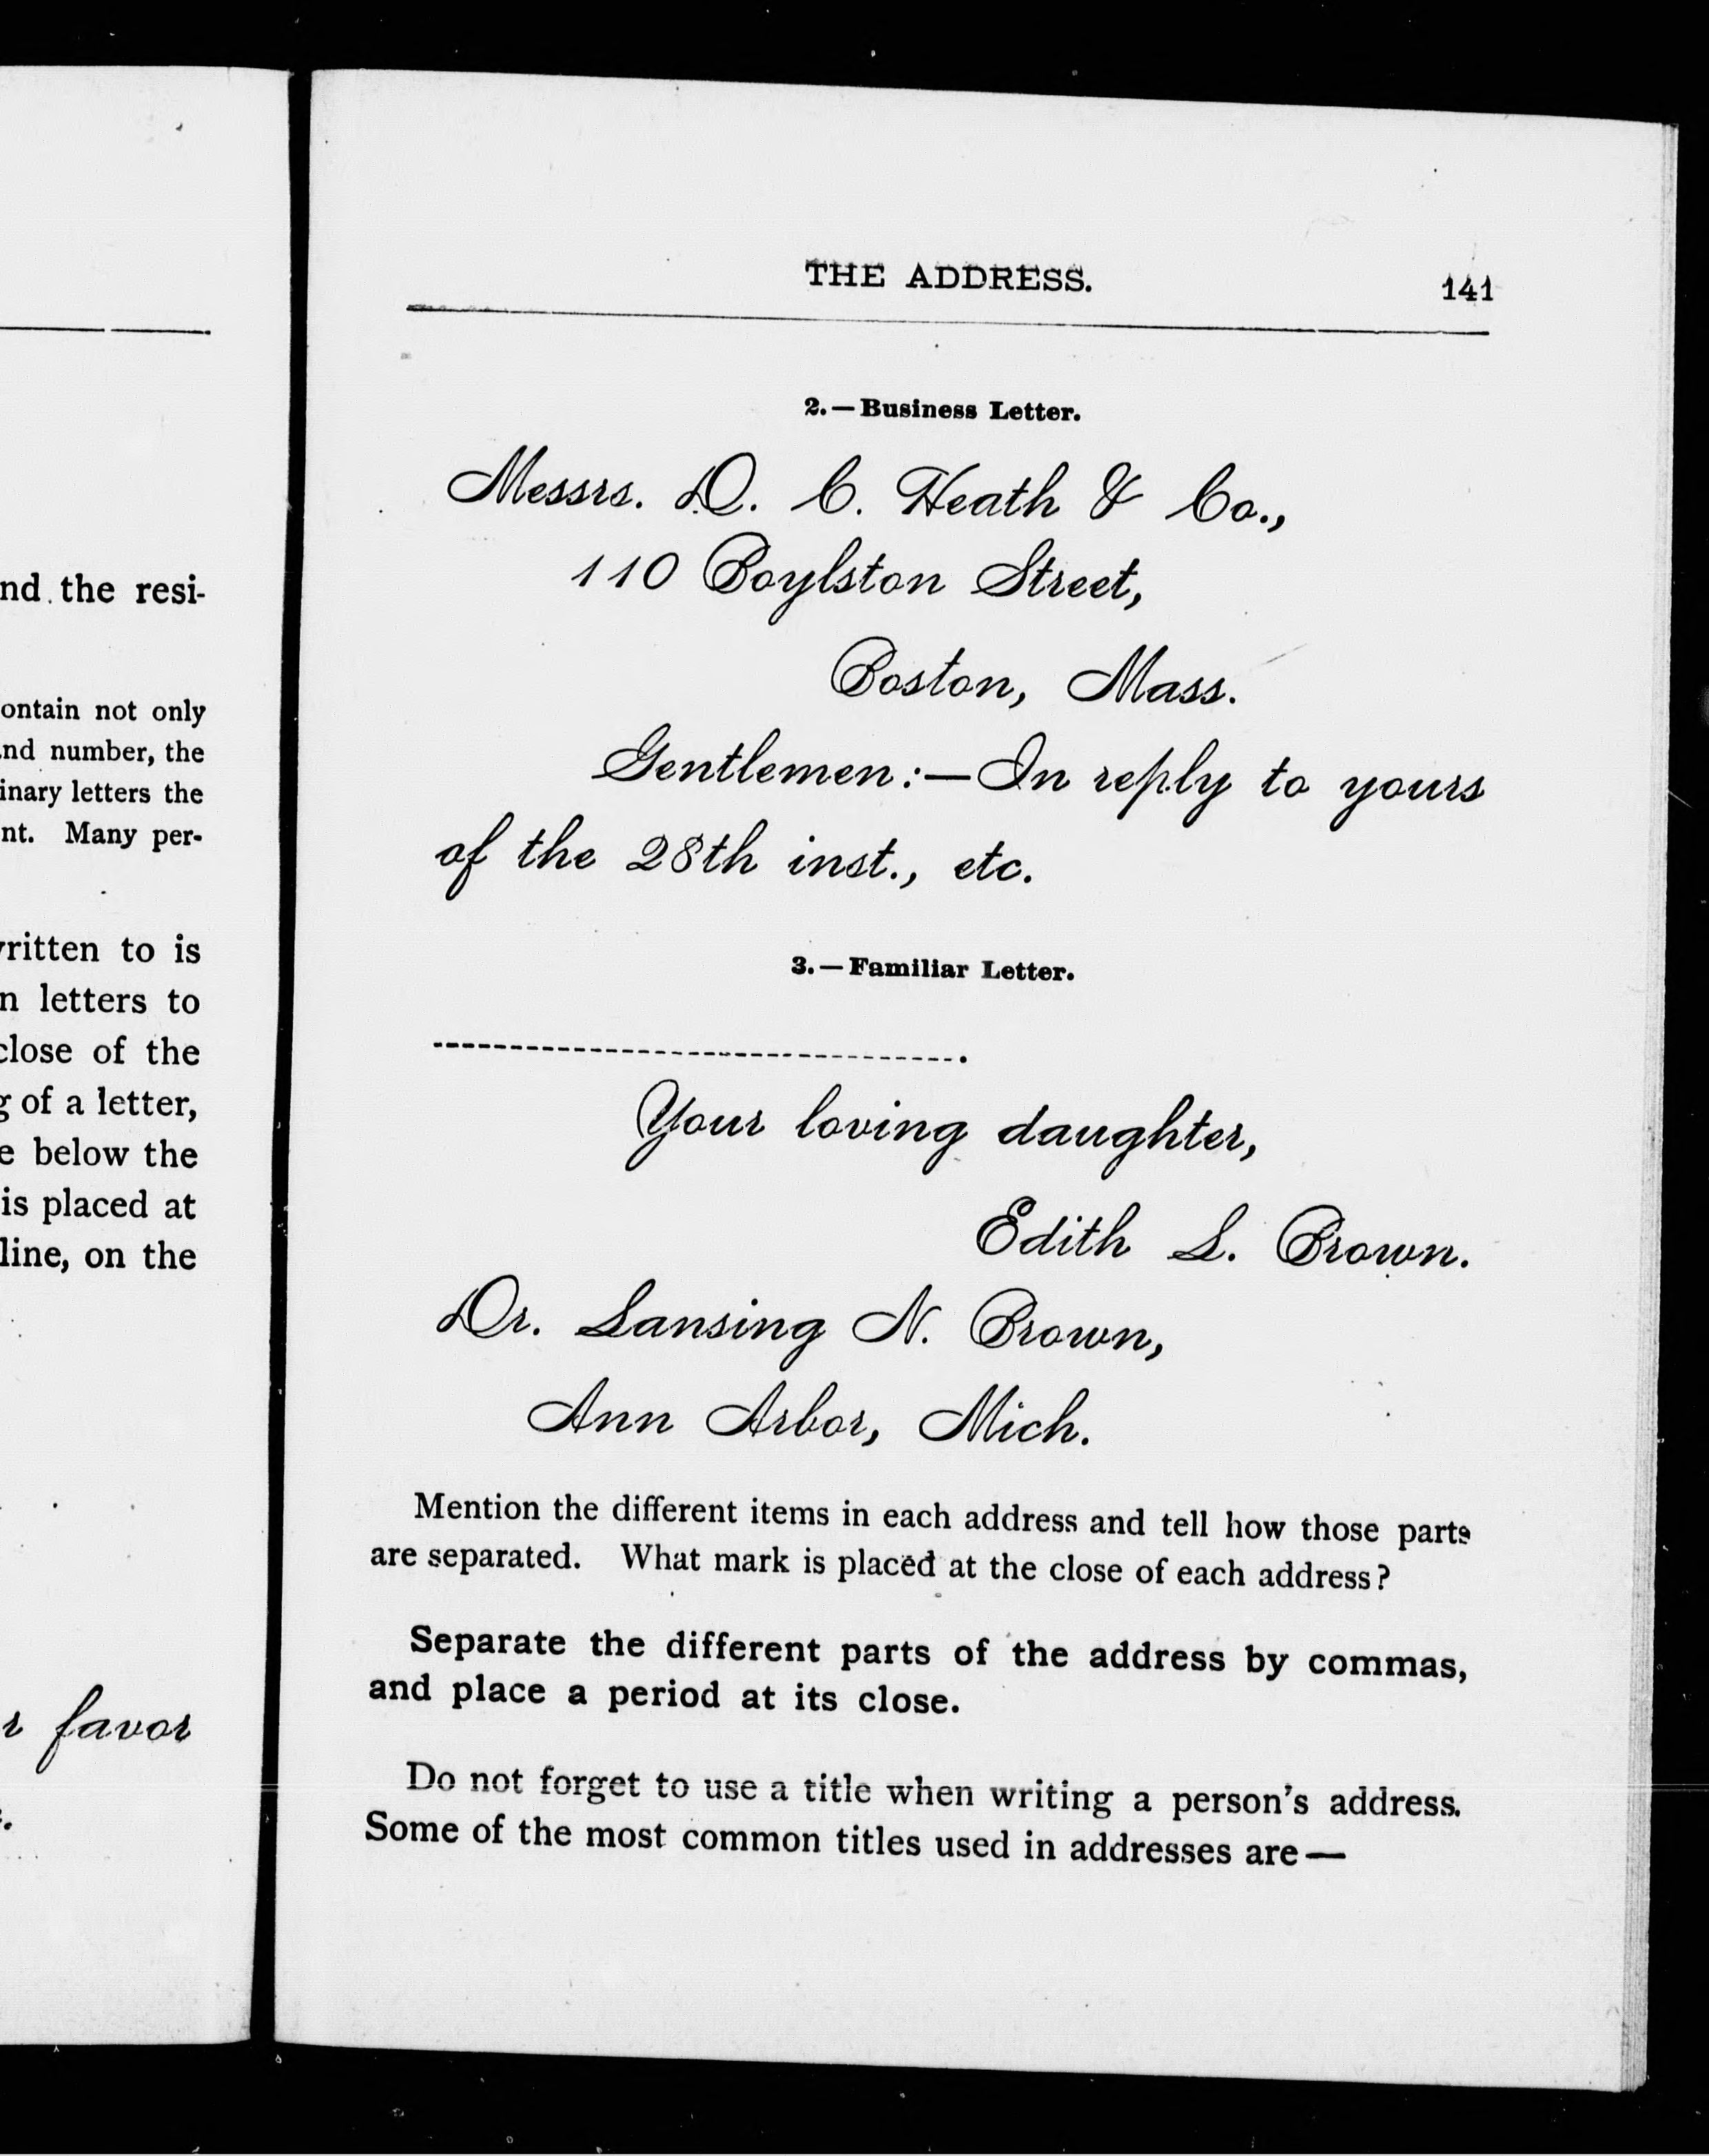 nd the resi-
ontain not only
nd number, the
inary letters the
nt. Many per-
ritten to is
n letters to
close of the
g of a letter,
e below the
is placed at
line, on the
r favor
THE ADDRESS. 141
2.—Business Letter.
Messrs. D. C. Heath & Co.,
110 Boylston Street,
Boston, Mass.
Gentlemen:—In reply to yours
of the 28th inst., etc.
3.—Familiar Letter.
---------------------------------.
Your loving daughter,
Edith L. Brown.
Dr. Lansing N. Brown,
Ann Arbor, Mich.
Mention the different items in each address and tell how those parts
are separated. What mark is placed at the close of each address?
Separate the different parts of the address by commas,
and place a period at its close.
Do not forget to use a title when writing a person's address.
Some of the most common titles used in addresses are—